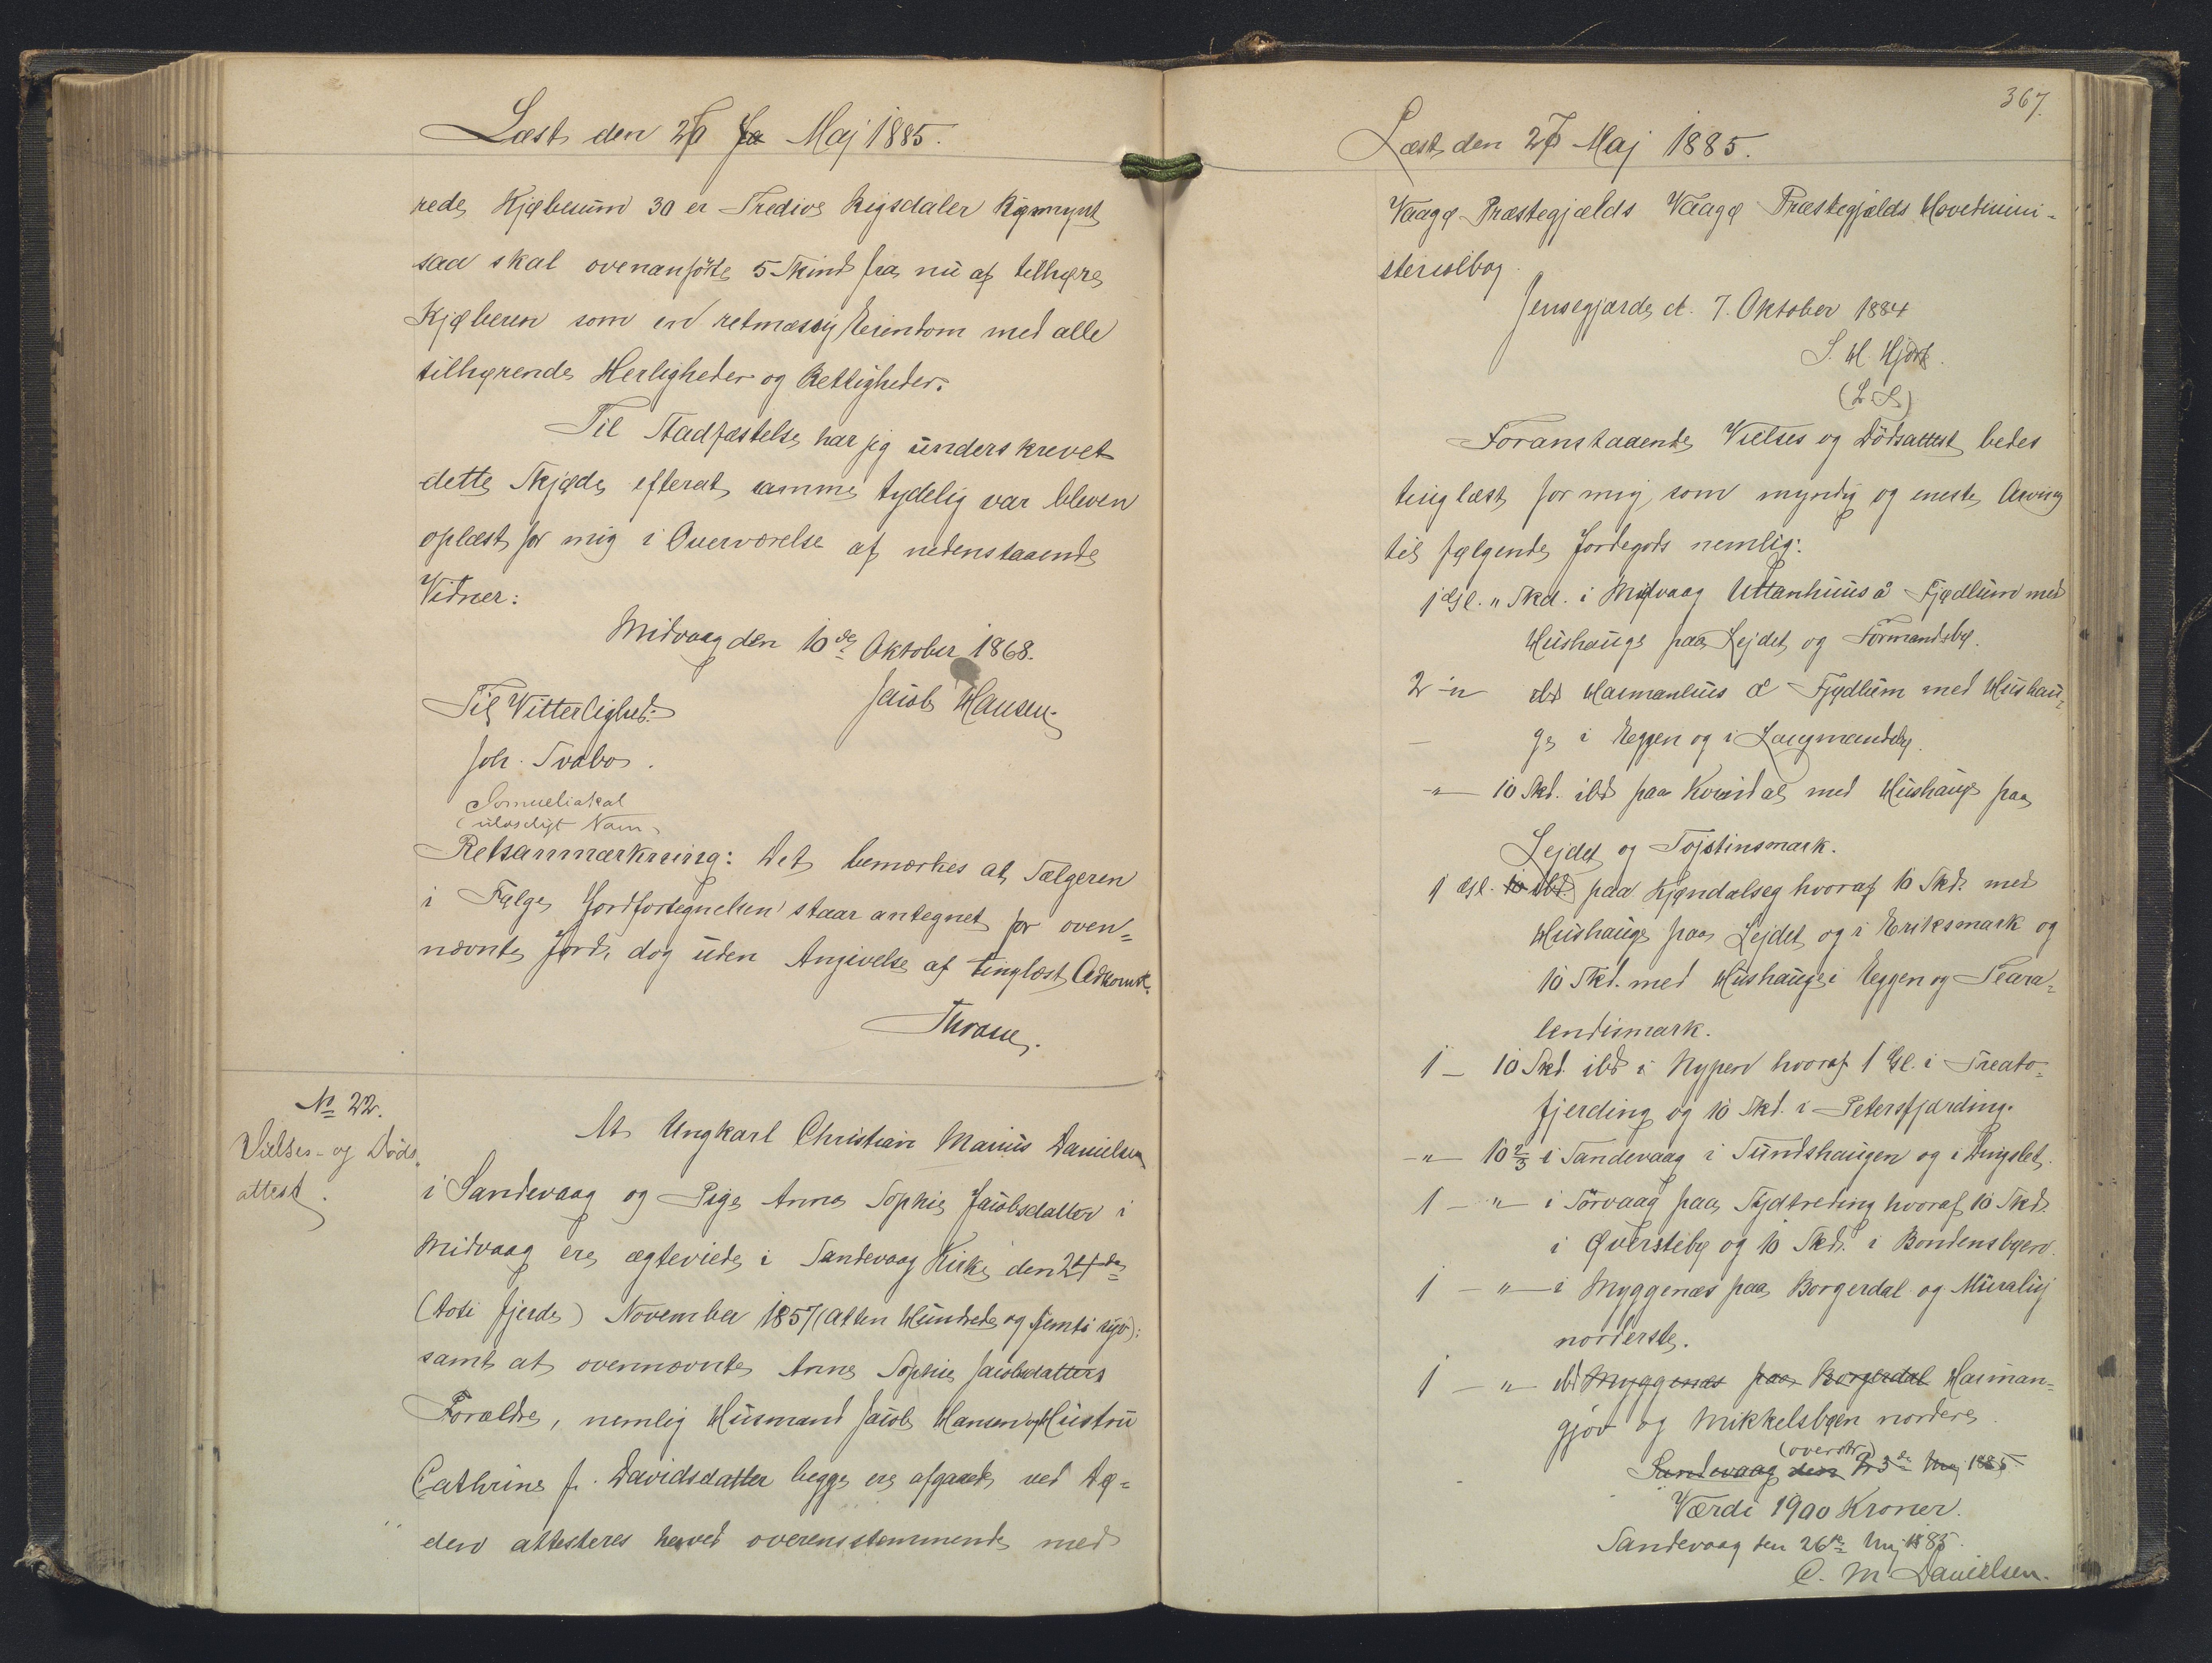 Læst den 26 Maj 1885.
rede Kjøbesum 30 er Tredive Rigsdaler Rigsmynt
saa skal ovenanførte 5 Skind fra nu af tilhøre
Kjøberen som en retmæssig Eiendom med alle
tilhørende Herligheder og Rettigheder.
Til Stadfæstelse har jeg underskrevet
dette Skjøde efterat samme tydelig var bleven
oplæst for mig i Overværelse af nedenstaaende
Vidner:
Midvaag den 10de Oktober 1868.
Jacob Hansen
Til Vitterlighed:
Joh. Svabo.
(ulæseligt Navn)
Retsanmærkning: Det bemærkes at Sælgeren
i Følge Jordfortegnelsen staar antegnet for oven=
nævnte Jord, dog uden Angivelse af tinglæst Adkomst.
Thrane.
No 22.
Vielses- og Døds
attest.
At Ungkarl Christian Marius Danielsen
i Sandevaag og Pige Anna Sophie Jacobsdatter i
Midvaag ere ægteviede i Sandevaag Kirke den 24de
(toti fjerde) November 1857 (Atten Hundrede og femti syv);
samt at ovennævnte Anna Sophie Jacobsdatters
Forældre, nemlig Husmand Jacob Hansen og Hustru
Cathrine f. Davidsdatter begge ere afgaaede ved Dø=
den attesteres herved overensstemmende med
367.
Læst den 26 Maj 1885.
Vaagø Præstegjælds Vaagø Præstegjælds Hovedmini=
sterialbog.
Jensegjærde, d. 7. Oktober 1884
S. H. Hjort.
(L. S.)
Foranstaaende Vielses og Dødsattest bedes
tinglæst for mig som myndig og eneste Arving
til følgende Jordegods nemlig:
1 Gl. " Skd. i Midvaag Uttanhuus å Fjødlum med
Hushauge paa Lejdet og Formandsbø.
2 - " ibd Harmanhus å Fjødlum med Hushau=
ge i Eggen og i Laugmandsbø.
- " - 10 Skd. ibd paa Kvindal med Hushauge paa
Lejdet og Tojstinsmark.
1 Gl. 10 ibd paa Kjøndalseg hvoraf 10 Skd. med
Hushauge paa Lejdet og i Eriksmark og
10 Skd. med Hushauge i Eggen og Teara=
lendismark.
1 - 10 Skd. ibd i Nypen hvoraf 1 Gl. i Treato=
fjerding og 10 Skd. i Petersfjærding.
- " - 10 2/3 i Sandevaag i Sundshaugen og i Dingslet.
1 - " - i Sörvaag paa Sydtreding hvoraf 10 Skd.
i Øverstebø og 10 Skd. i Bondensbøen.
1 - " - i Myggenæs paa Borgerdal og Muralij
norderste.
1 - " - ibd Myggenæs paa Borgerdal Harman=
gjov og Mikkelsbøen nordere.
(overstr.)
Sandevaag den 23de Maj 1885.
Værdi 1900 Kroner.
Sandevaag den 26de Maj 1885.
C. M. Danielsen.